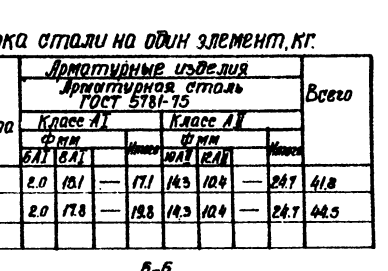 ка стали на один элемент, кг.
Арматурные изделия
Арматурная сталь
ГОСТ 5781-75
Всего
Класс АI Класс АII
Фмм Итого Фмм Итого
6АI 8АI 10АII 12АII
2.0 15.1 — 17.1 14.3 10.4 — 24.7 41.8
2.0 17.8 — 19.8 14.3 10.4 — 24.7 44.5
Б-Б